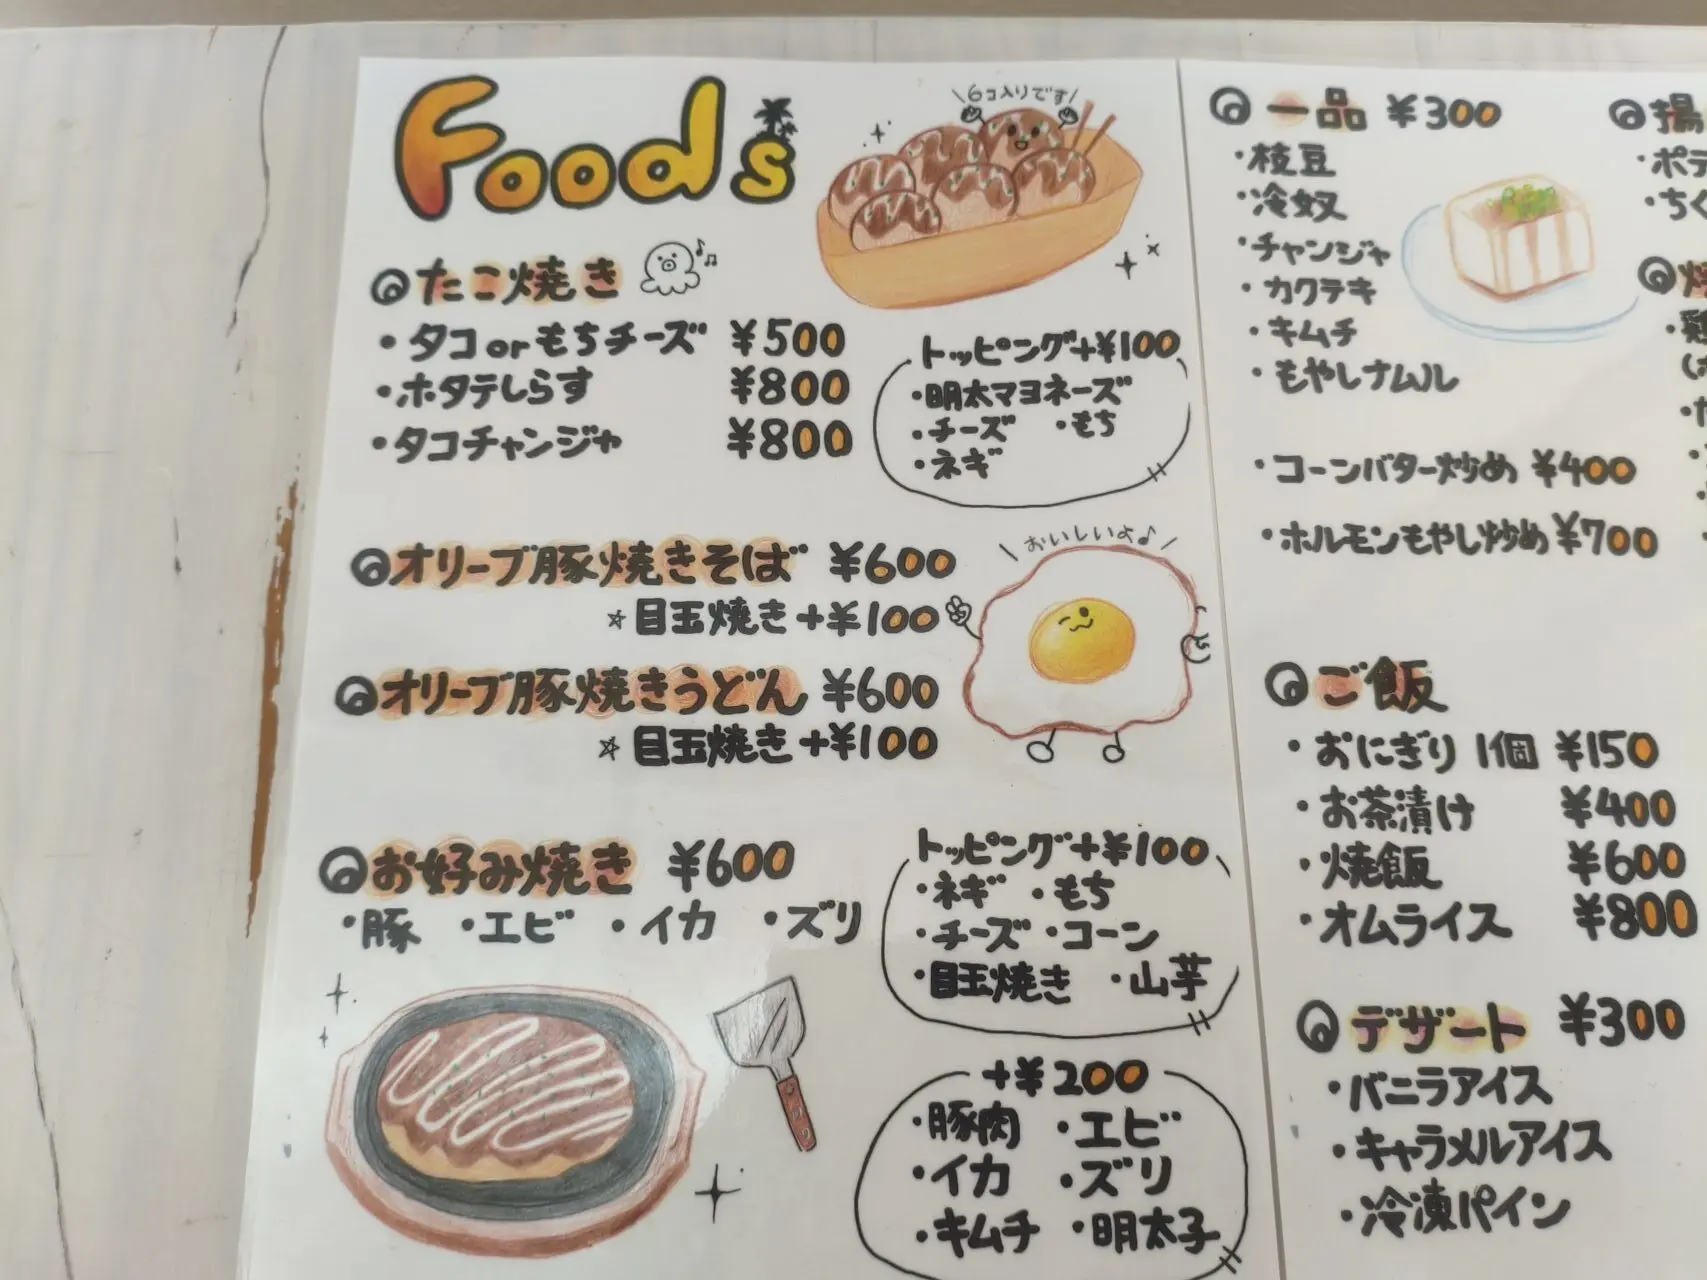 Foods
＼6コ入りです／
たこ焼き
・タコorもちチーズ ¥500
・ホタテしらす ¥800
・タコチャンジャ ¥800
トッピング+¥100
・明太マヨネーズ
・チーズ ・もち
・ネギ
オリーブ豚焼きそば ¥600
☆目玉焼き+¥100
＼おいしいよ♪／
オリーブ豚焼きうどん ¥600
☆目玉焼き+¥100
お好み焼き ¥600
・豚 ・エビ ・イカ ・ズリ
トッピング+¥100
・ネギ ・もち
・チーズ ・コーン
・目玉焼き ・山芋
+¥200
・豚肉 ・エビ
・イカ ・ズリ
・キムチ ・明太子
一品 ¥300
・枝豆
・冷奴
・チャンジャ
・カクテキ
・キムチ
・もやしナムル
・コーンバター炒め ¥400
・ホルモンもやし炒め ¥700
ご飯
・おにぎり 1個 ¥150
・お茶漬け ¥400
・焼飯 ¥600
・オムライス ¥800
デザート ¥300
・バニラアイス
・キャラメルアイス
・冷凍パイン
揚
・ポテ
・ちく